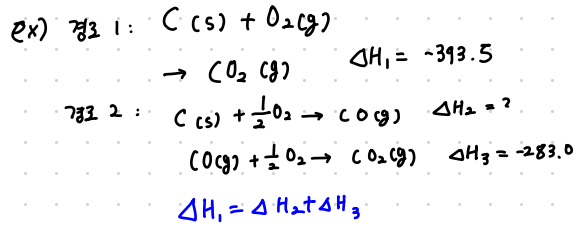 ex) 경로 1: C(s) + O₂(g)
→ CO₂(g) ΔH₁ = -393.5
경로 2: C(s) + ½O₂ → CO(g) ΔH₂ = ?
CO(g) + ½O₂ → CO₂(g) ΔH₃ = -283.0
ΔH₁ = ΔH₂ + ΔH₃